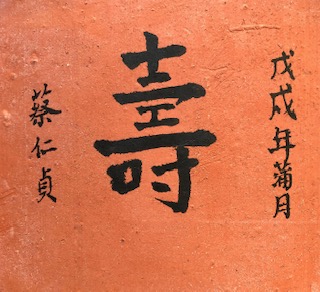 戊戌年蒲月
壽
蔡仁貞